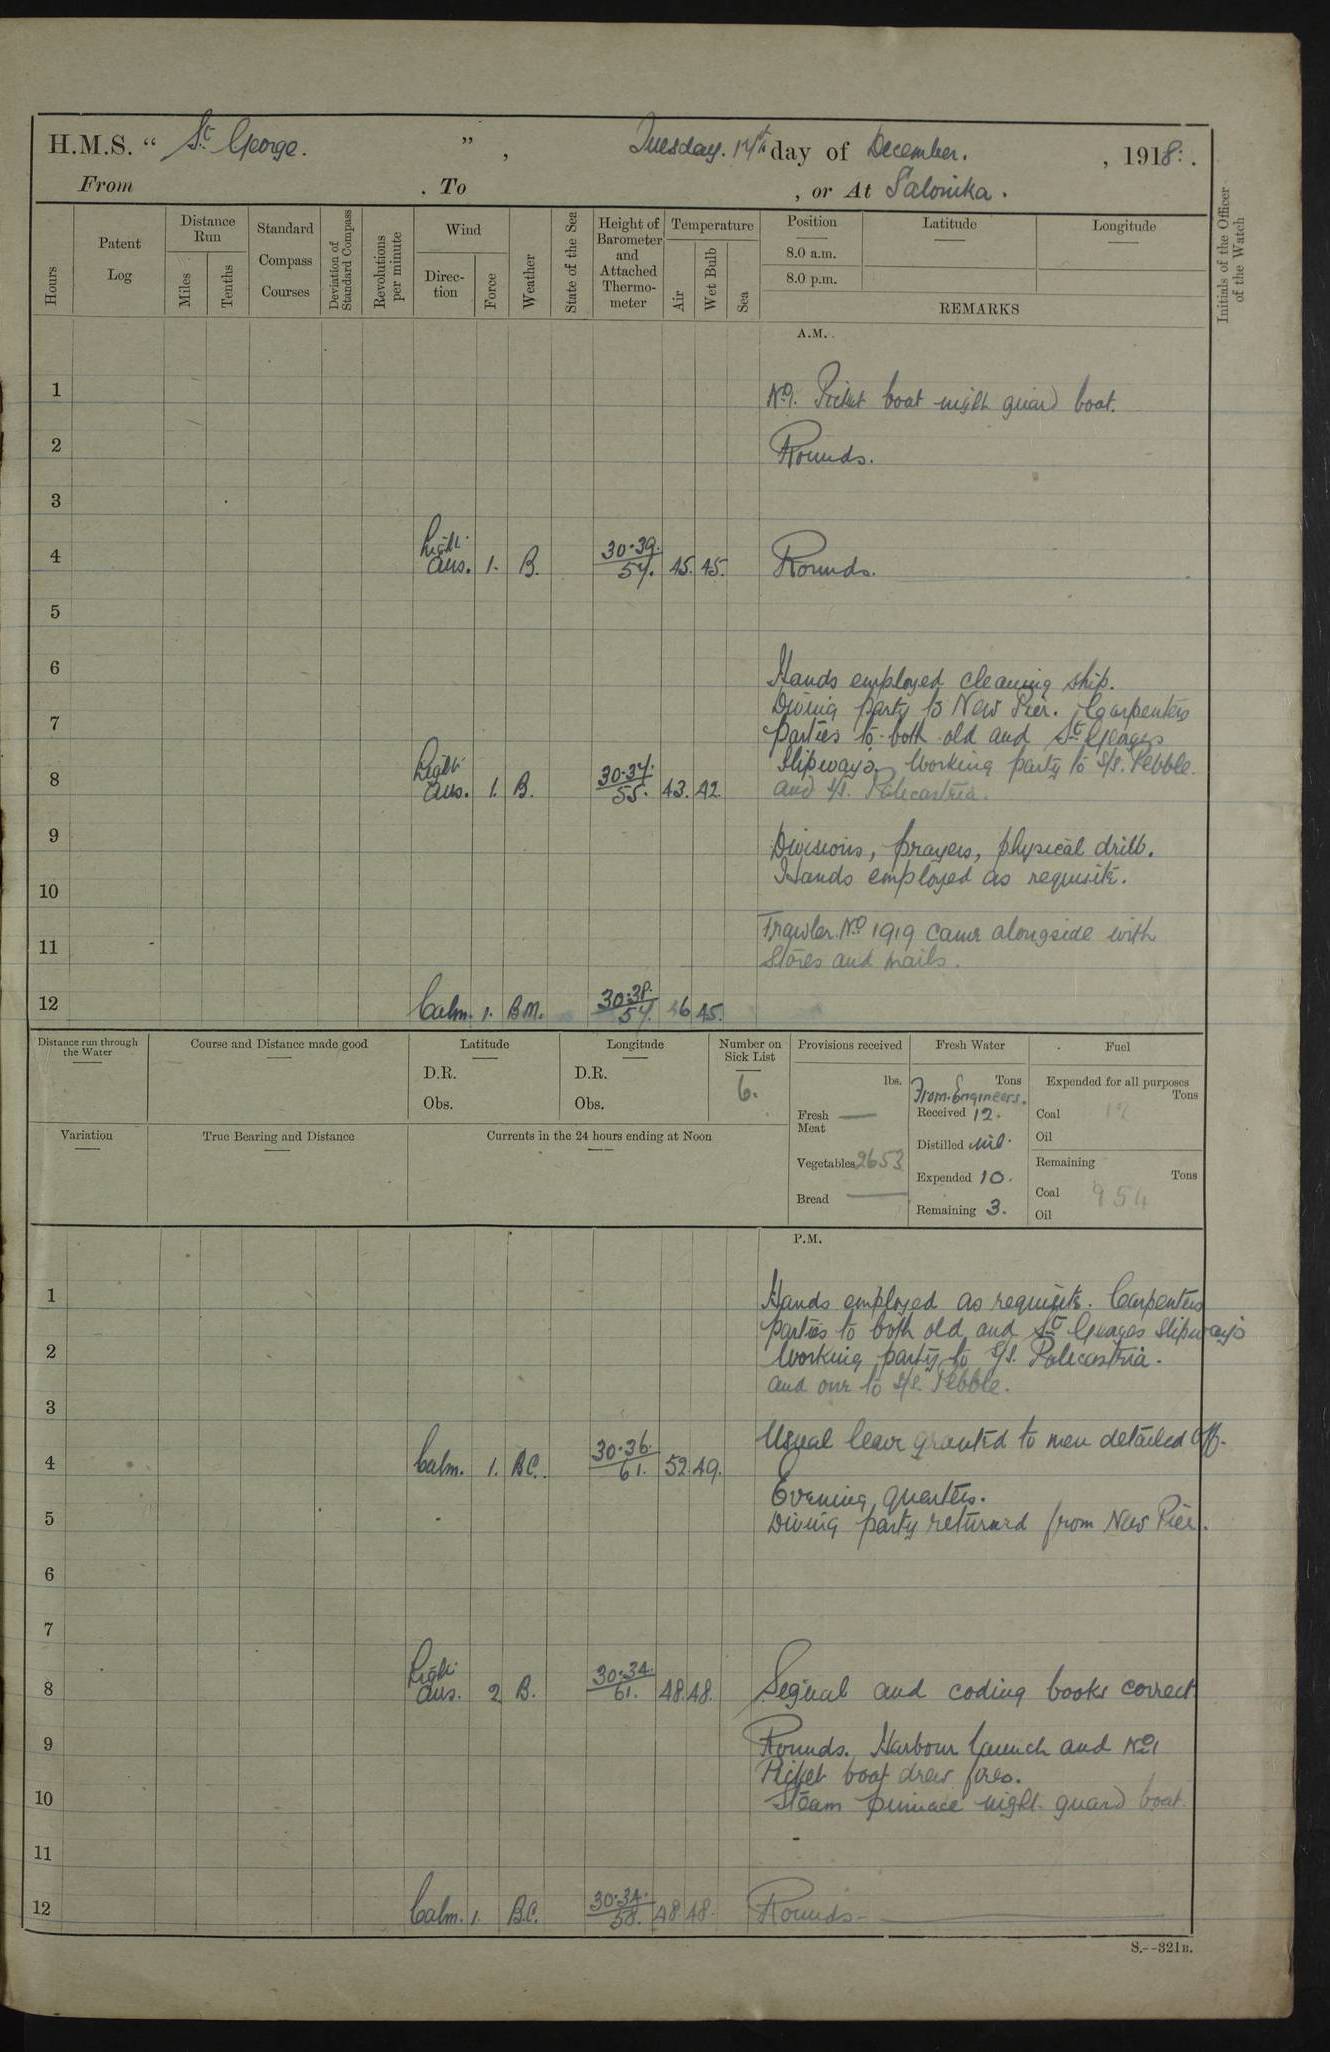 H.M.S. “ St George. ” , Tuesday. 17th day of December. , 1918.
From . To , or At Salonika.
Hours
Patent Log
Distance Run
Miles
Tenths
Standard Compass Courses
Deviation of Standard Compass
Revolutions per minute
Wind
Direction
Force
Weather
State of the Sea
Height of Barometer and Attached Thermometer
Temperature
Air
Wet Bulb
Sea
Position
8.0 a.m.
8.0 p.m.
Latitude
Longitude
REMARKS
Initials of the Officer of the Watch
A.M.
1 No 1. Picket boat night guard boat.
2 Rounds.
3
4 Light airs. 1. B. 30.39. 57. 45. 45. Rounds.
5
6 Hands employed cleaning ship.
Diving party to New Pier. Carpenters
7 parties to both old and St Georges
Slipways. Working party to S/S. Pebble.
8 Light airs. 1. B. 30.37. 55. 43. 42. and S/S. Policastria.
9 Divisions, prayers, physical drill.
Hands employed as requisite.
10
11 Trawler No 1919 came alongside with
Stores and mails.
12 Calm. 1. B.M. 30.38. 57. 46 45.
Distance run through the Water
Course and Distance made good
Latitude
D.R.
Obs.
Longitude
D.R.
Obs.
Number on Sick List
6.
Provisions received
lbs.
Fresh Meat —
Vegetables 2653
Bread —
Fresh Water
Tons
From Engineers.
Received 12.
Distilled Nil.
Expended 10.
Remaining 3.
Fuel
Expended for all purposes
Tons
Coal
Oil
Remaining
Tons
Coal 954
Oil
Variation
True Bearing and Distance
Currents in the 24 hours ending at Noon
P.M.
1 Hands employed as requisite. Carpenters
parties to both old and St Georges Slipways
2 Working party to S/S. Policastria.
and one to S/S. Pebble.
3
Usual leave granted to men detailed off.
4 Calm. 1. B.C. 30.36. 61. 52. 49.
Evening quarters.
5 Diving party returned from New Pier.
6
7
8 Light airs. 2 B. 30.34. 61. 48. 48. Signal and coding books correct
9 Rounds. Harbour launch and No 1
Picket boat drew fires.
10 Steam pinnace night guard boat.
11
12 Calm. 1. B.C. 30.34. 58. 48 48. Rounds
S.--321B.